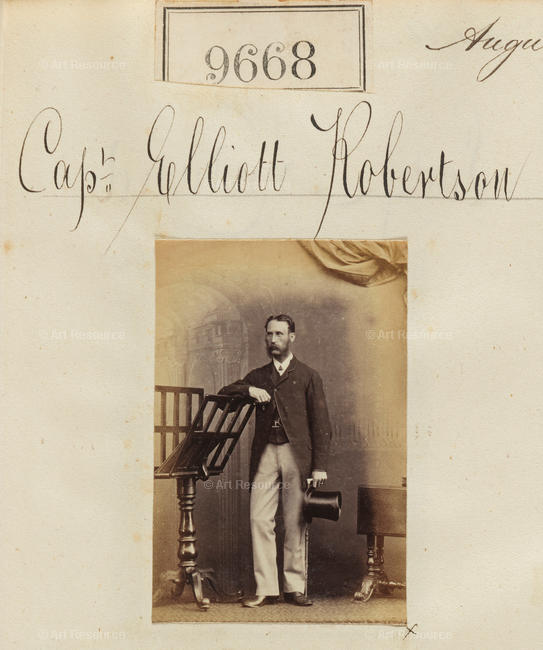 9668
Augu
Capt. Elliott Robertson
© Art Resource
© Art Resource
© Art Resource
© Art Resource
© Art Resource
© Art Resource
© Art Resource